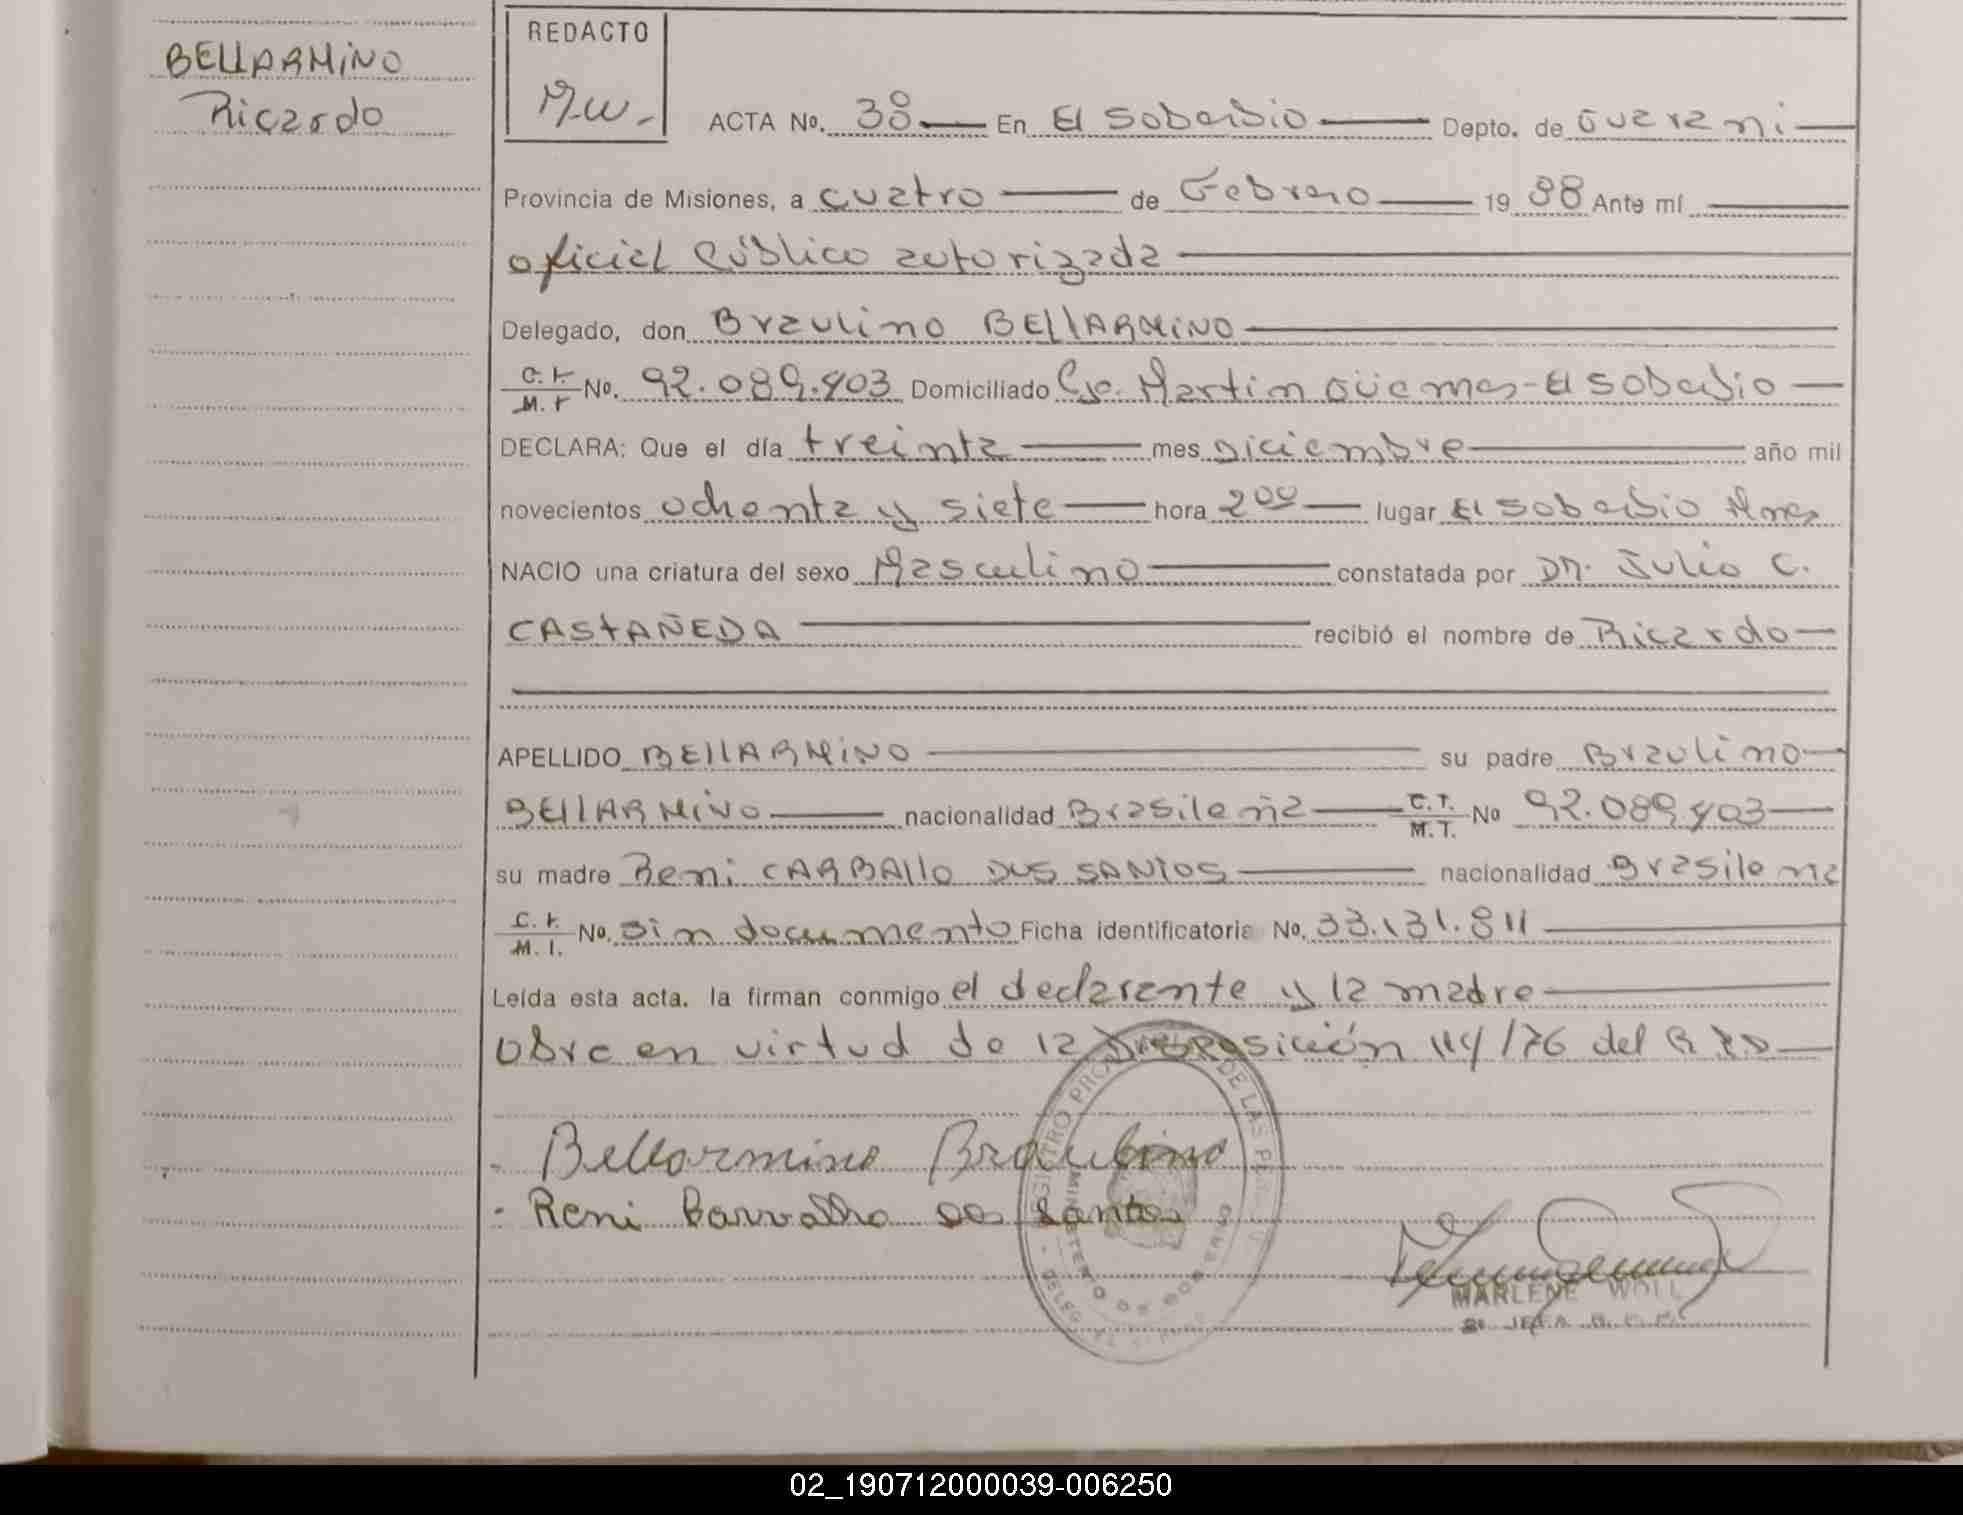 BELLARMINO
Ricardo
REDACTO
M.W.-
ACTA No. 38 En El Soberbio Depto. de Guarani
Provincia de Misiones, a cuatro de Febrero 19 88 Ante mí
oficial Público autorizada
Delegado, don Braulino BELLARMINO
C.I. M.I No. 92.089.403 Domiciliado Martin Güemes-El Soberbio
DECLARA: Que el día treinta mes diciembre año mil
novecientos ochenta y siete hora 2⁰⁰ lugar El Soberbio Mnes
NACIO una criatura del sexo Masculino constatada por DR. Julio C.
CASTAÑEDA recibió el nombre de Ricardo
APELLIDO BELLARMINO su padre Braulino
BELLARMINO nacionalidad Brasileña C.I. M.I. No 92.089.403
su madre Reni CARBALLO DOS SANTOS nacionalidad Brasileña
C.I. M.I. No. sin documento Ficha identificatoria No. 33.131.811
Leída esta acta, la firman conmigo el declarante y la madre
Obre en virtud de la Disposición 114/76 del
Bellarmino Braulino
Reni Carvalho dos Santos
REGISTRO DE LAS
MINISTERIO DE GOBIERNO
MARLENE WOLL
02_190712000039-006250